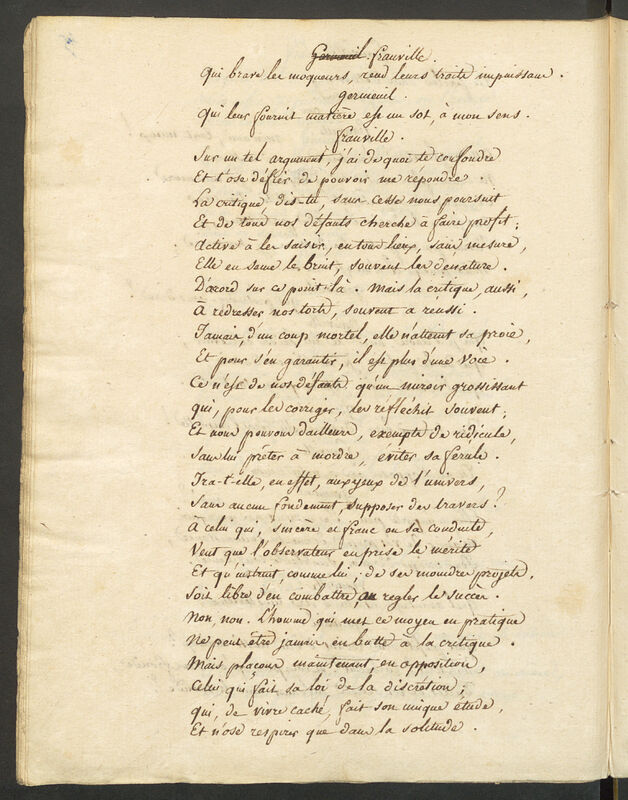 Germeuil. franville.
Qui brave les moqueurs, rend leurs traits impuissans.
germeuil.
Qui leur fournit matière est un sot, à mon sens.
franville.
Sur un tel argument, j'ai de quoi te confondre
Et t'ose défier de pouvoir me répondre.
La critique, dis-tu, sans cesse nous poursuit
Et de tous nos défauts cherche à faire profit;
Active à les saisir, en tous lieux, sans mesure,
Elle en seme le bruit, souvent les dénature.
D'acord sur ce point-là. Mais la critique, aussi,
À redresser nos torts, souvent a réussi.
Jamais, d'un coup mortel, elle n'atteint sa proie,
Et pour s'en garantir, il est plus d'une voie.
Ce n'est de nos défauts qu'un miroir grossissant
qui, pour les corriger, les réfléchit souvent;
Et nous pouvons d'ailleurs, exempts de ridicule,
Sans lui prêter à mordre, éviter sa ferule.
Ira-t-elle, en effet, aux yeux de l'univers,
Sans aucun fondement, supposer des travers?
A celui qui, sincère et franc en sa conduite,
Veut que l'observateur en prise le mérite
Et qu'instruit comme lui, de ses moindres projets,
Soit libre d'en combattre, ou regler le succès.
Non, non. L'homme qui met ce moyen en pratique
Ne peut être jamais en butte à la critique.
Mais plaçons maintenant, en opposition,
Celui qui fait sa loi de la discrétion;
qui, de vivre caché, fait son unique étude,
Et n'ose respirer que dans la solitude.